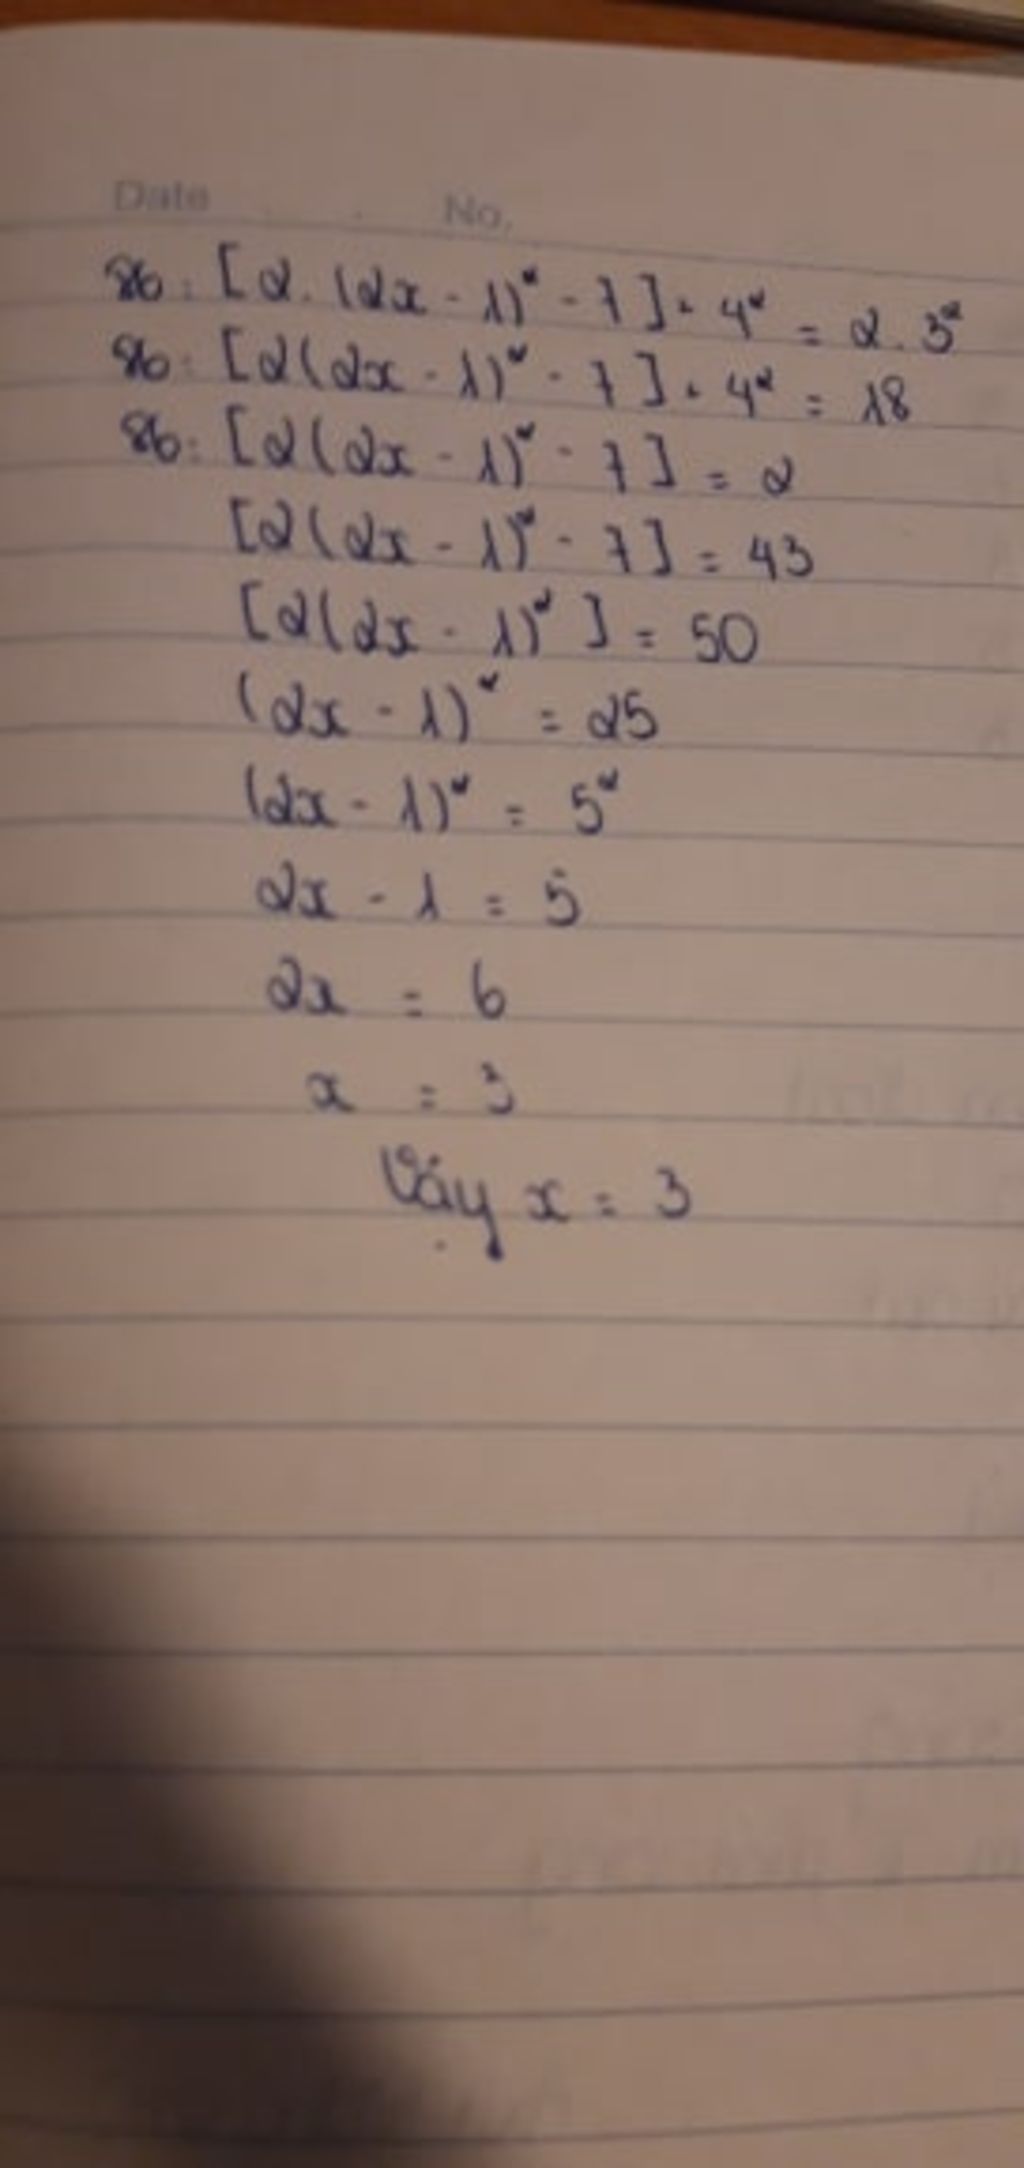 Date No.
86 : [2. (2x - 1)² - 7] + 4² = 2. 3²
86 : [2(2x - 1)² - 7] + 4² = 18
86 : [2(2x - 1)² - 7] = 2
[2(2x - 1)² - 7] = 43
[2(2x - 1)²] = 50
(2x - 1)² = 25
(2x - 1)² = 5²
2x - 1 = 5
2x = 6
x = 3
Vậy x = 3